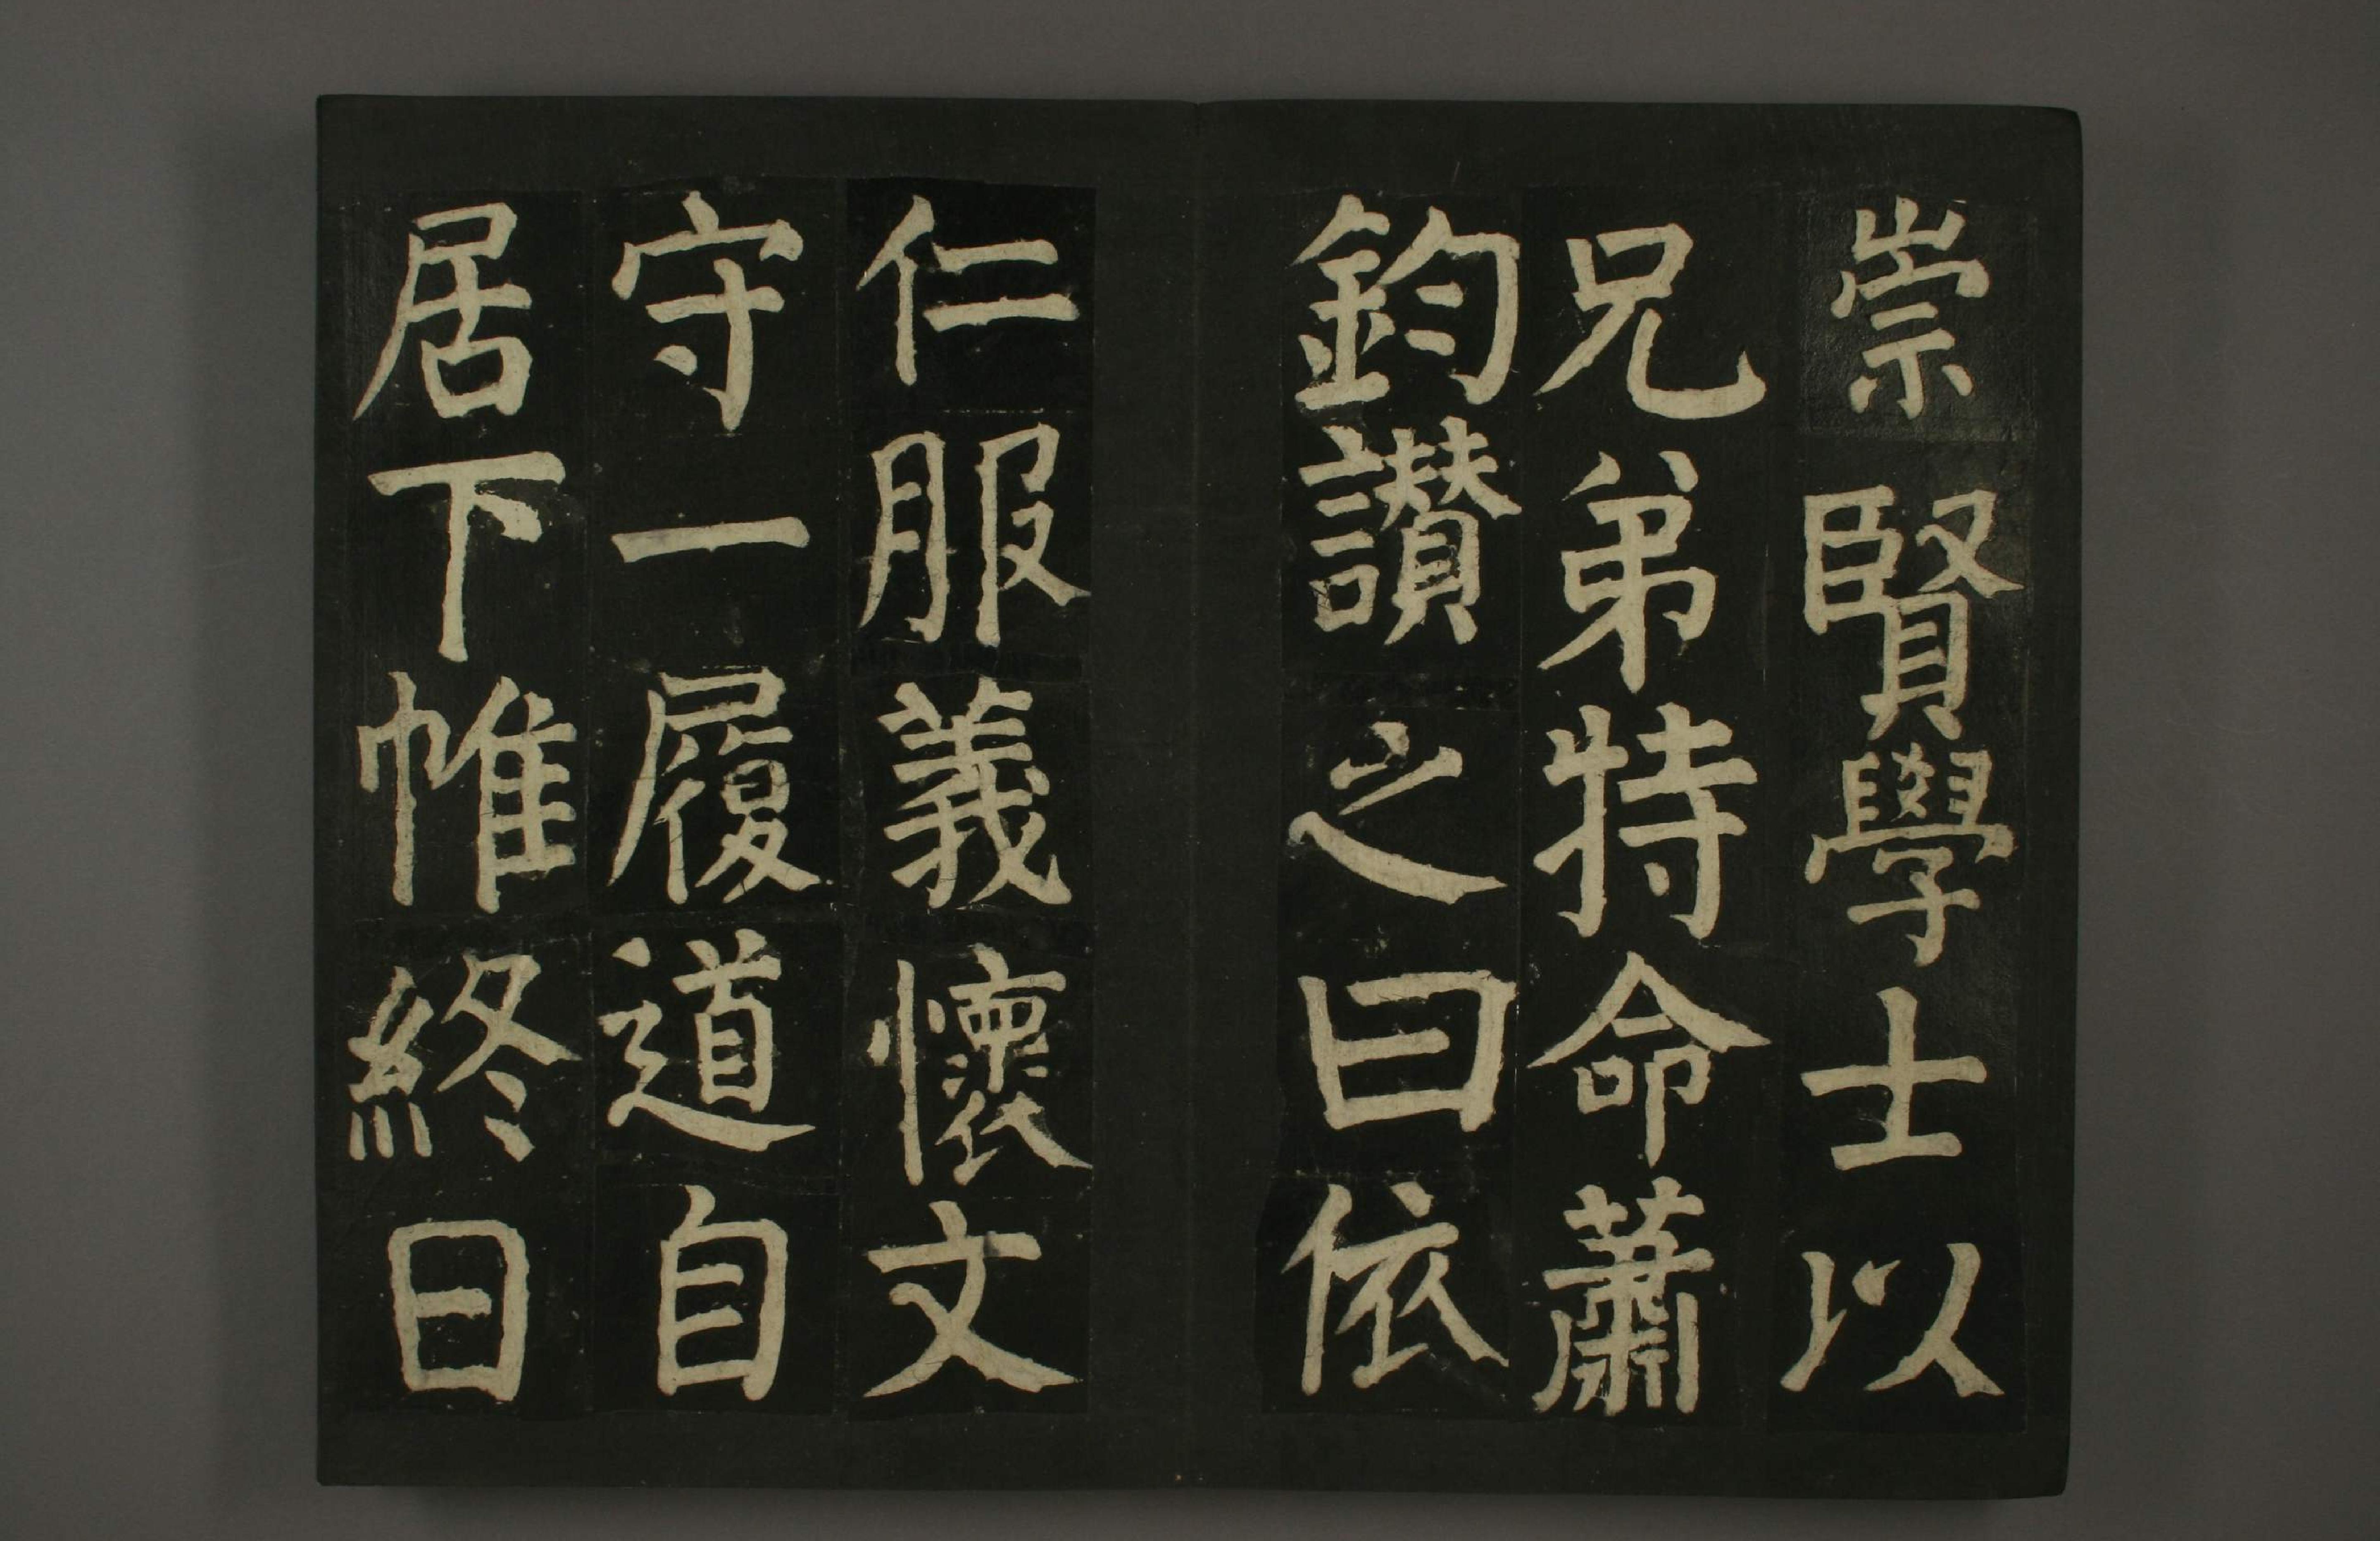 崇賢學士以
兄弟特命蕭
鈞讃之曰依
仁服義懷文
守一履道自
居下帷終日